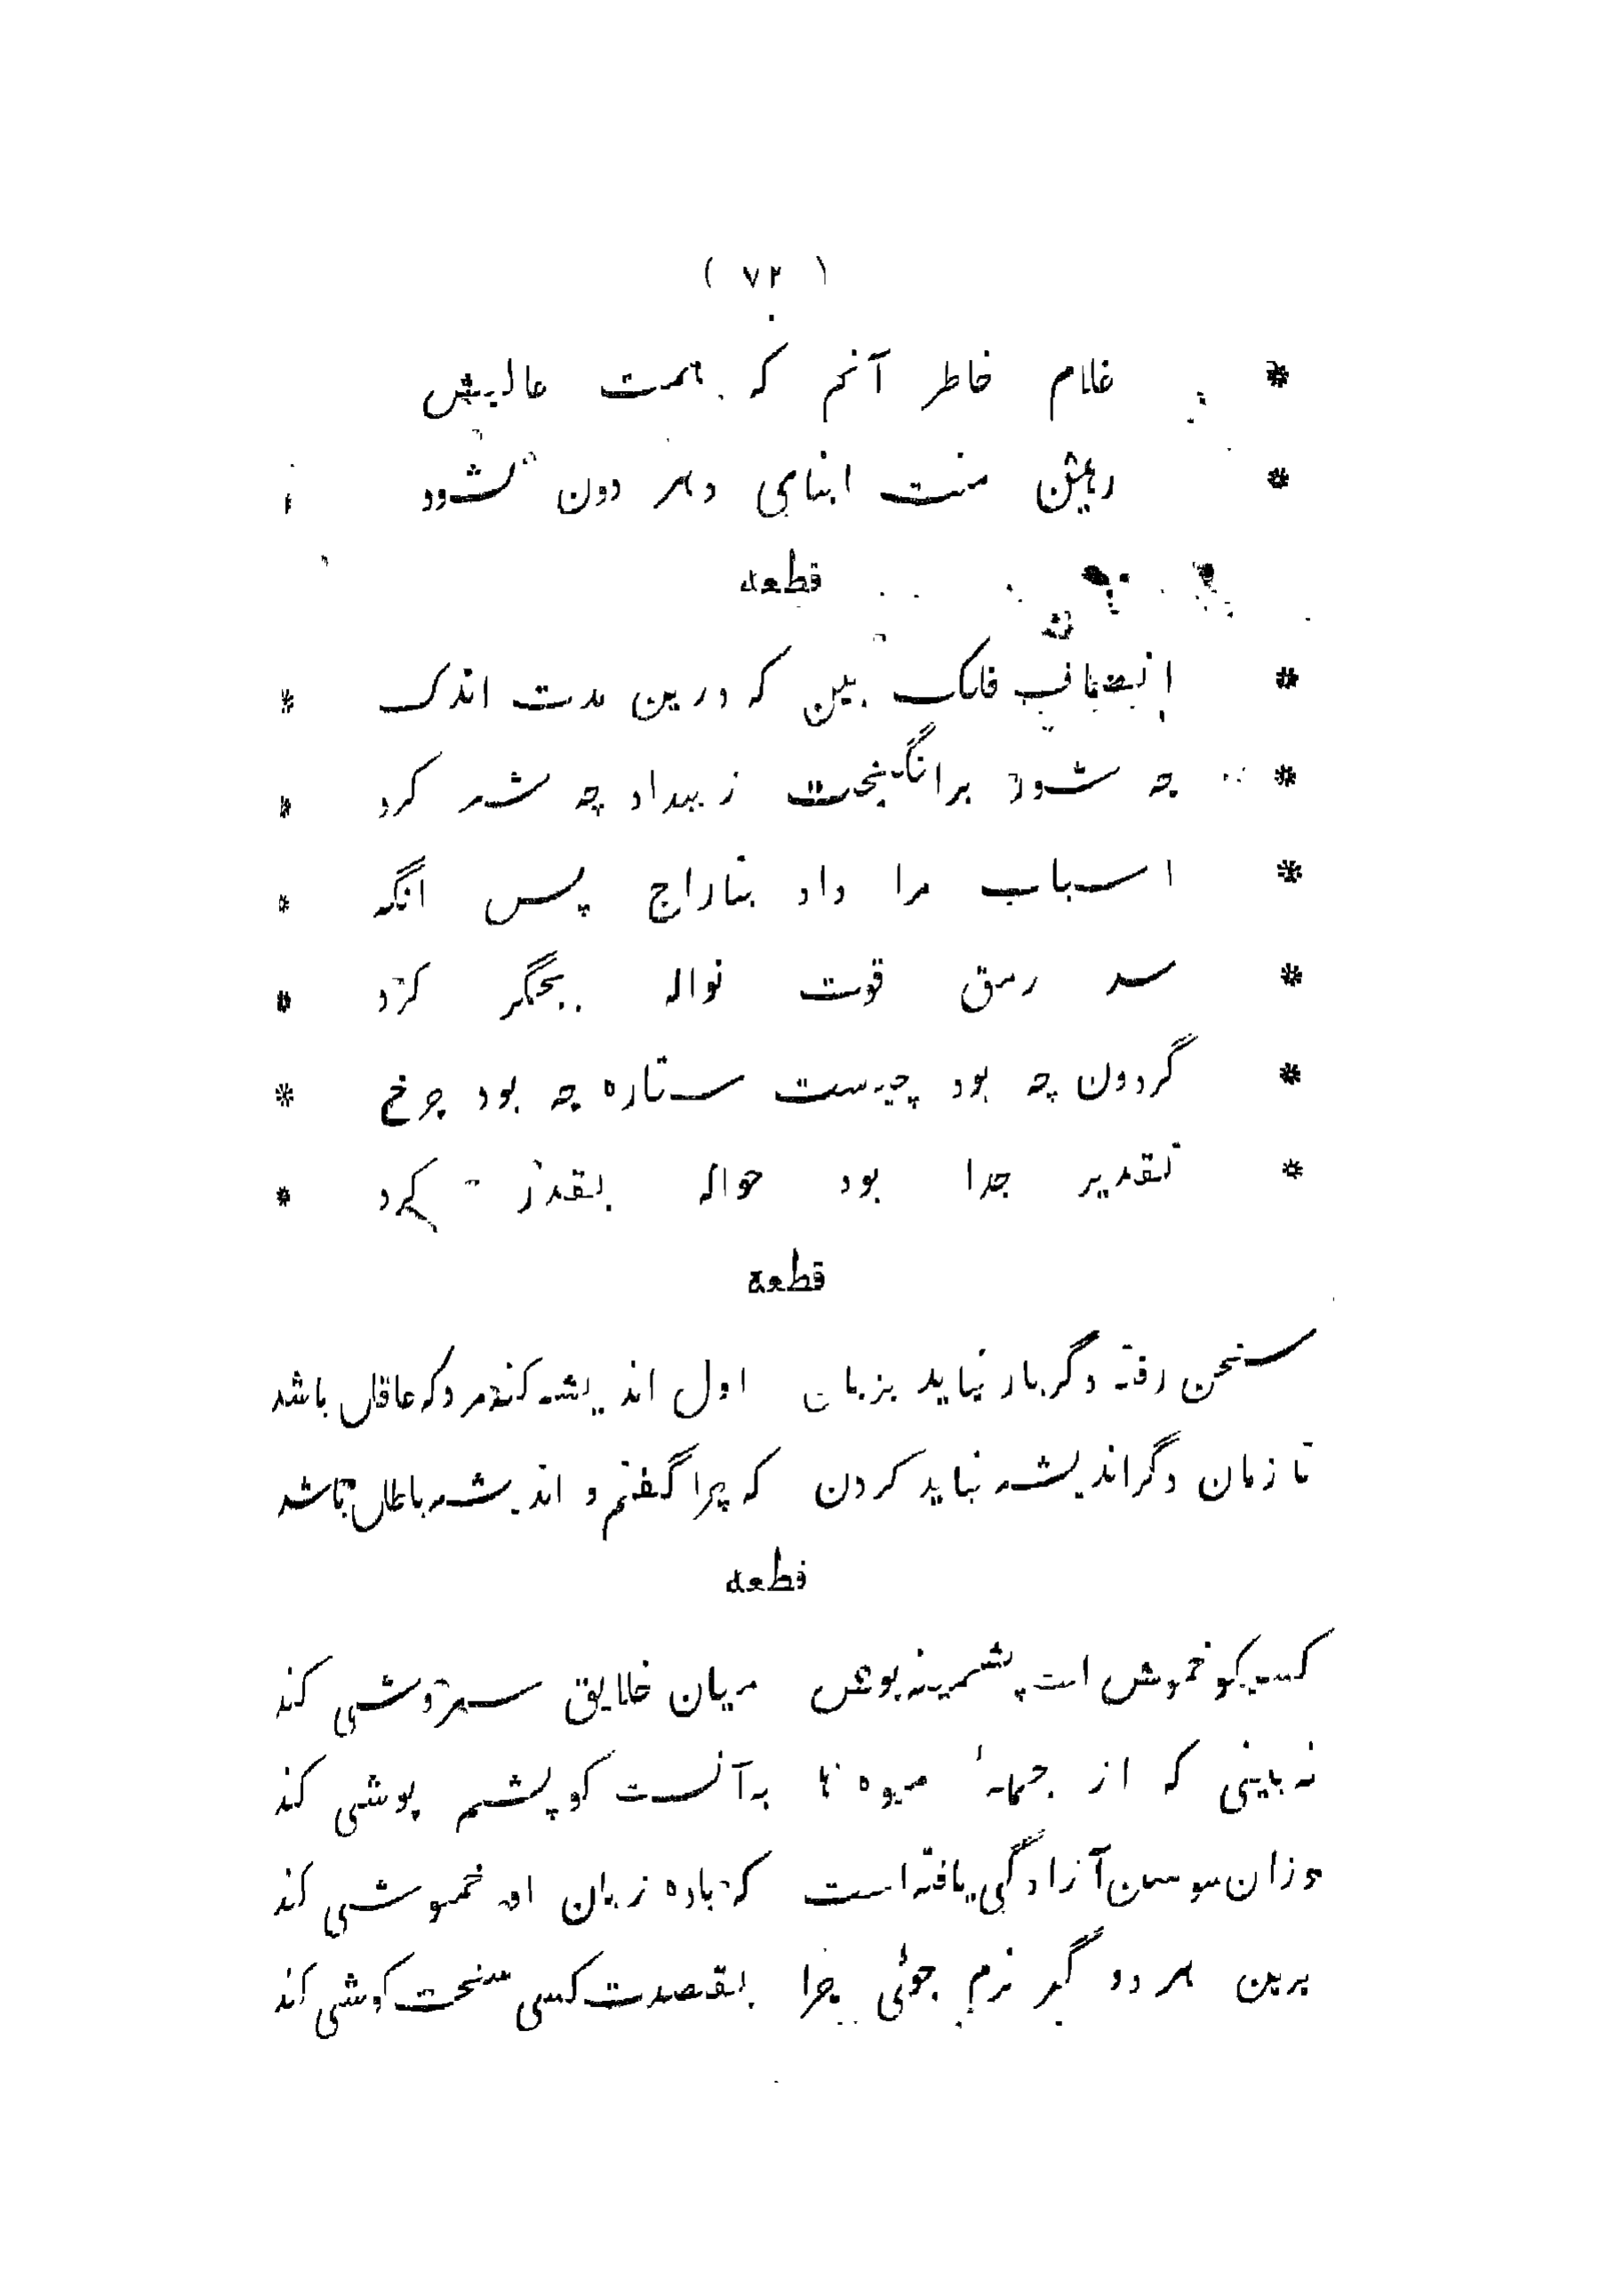 ( ۷۲ )
* غلام خاطر آنم که همت عالیش
* رهین منت ابنای دهر دون نشود *
قطعه
* انصاف فلک ببین که درین مدت اندک *
* چه شور برانگیخت ز بیداد چه شر کرد *
* اسباب مرا داد بتاراج پس انگه *
* سد رمق قوت نواله بجگر کرد *
* گردون چه بود چیست ستاره چه بود چرخ *
* تقدیر جدا بود حواله بقدر کرد *
قطعه
سخن رفته دگر بار نیاید بزبان اول اندیشه کند مرد که عاقل باشد
تا زمان دگر اندیشه نباید کردن که چرا گفتم و اندیشه باطل باشد
قطعه
کسیکو خموش است پشمینه پوش میان خلایق سروشی کند
نه بینی که از جملهٔ میوه ها به آنست کو پشم پوشی کند
وزان سوسن آزادگی یافته است که باده زبان او خموشی کند
برین هر دو گر نرم جوئی چرا بقصدت کسی سخت کوشی کند